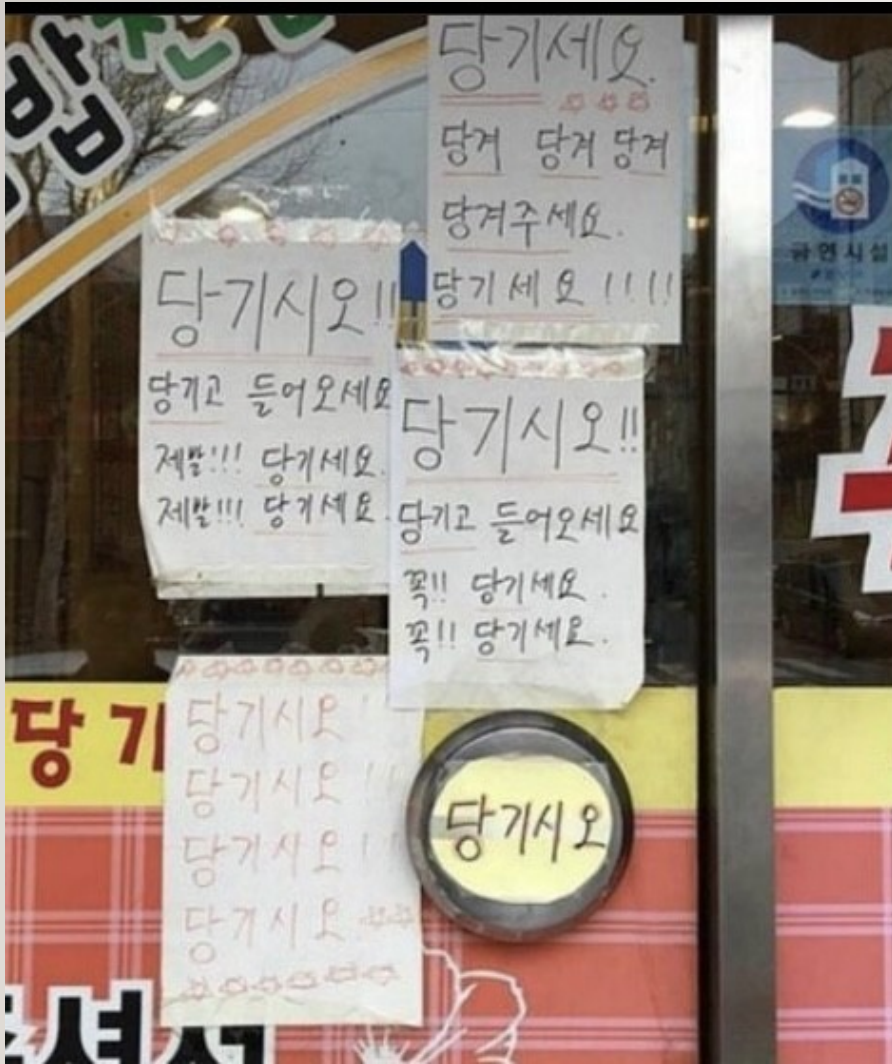 밥
당기세요.
당겨 당겨 당겨
당겨주세요.
당기세요!!!!
금연시설
당기시오!!
당기고 들어오세요
제발!!! 당기세요.
제발!!! 당기세요.
당기시오!!
당기고 들어오세요
꼭!! 당기세요.
꼭!! 당기세요.
당기
당기시오!
당기시오!!
당기시오!!
당기시오
당기시오